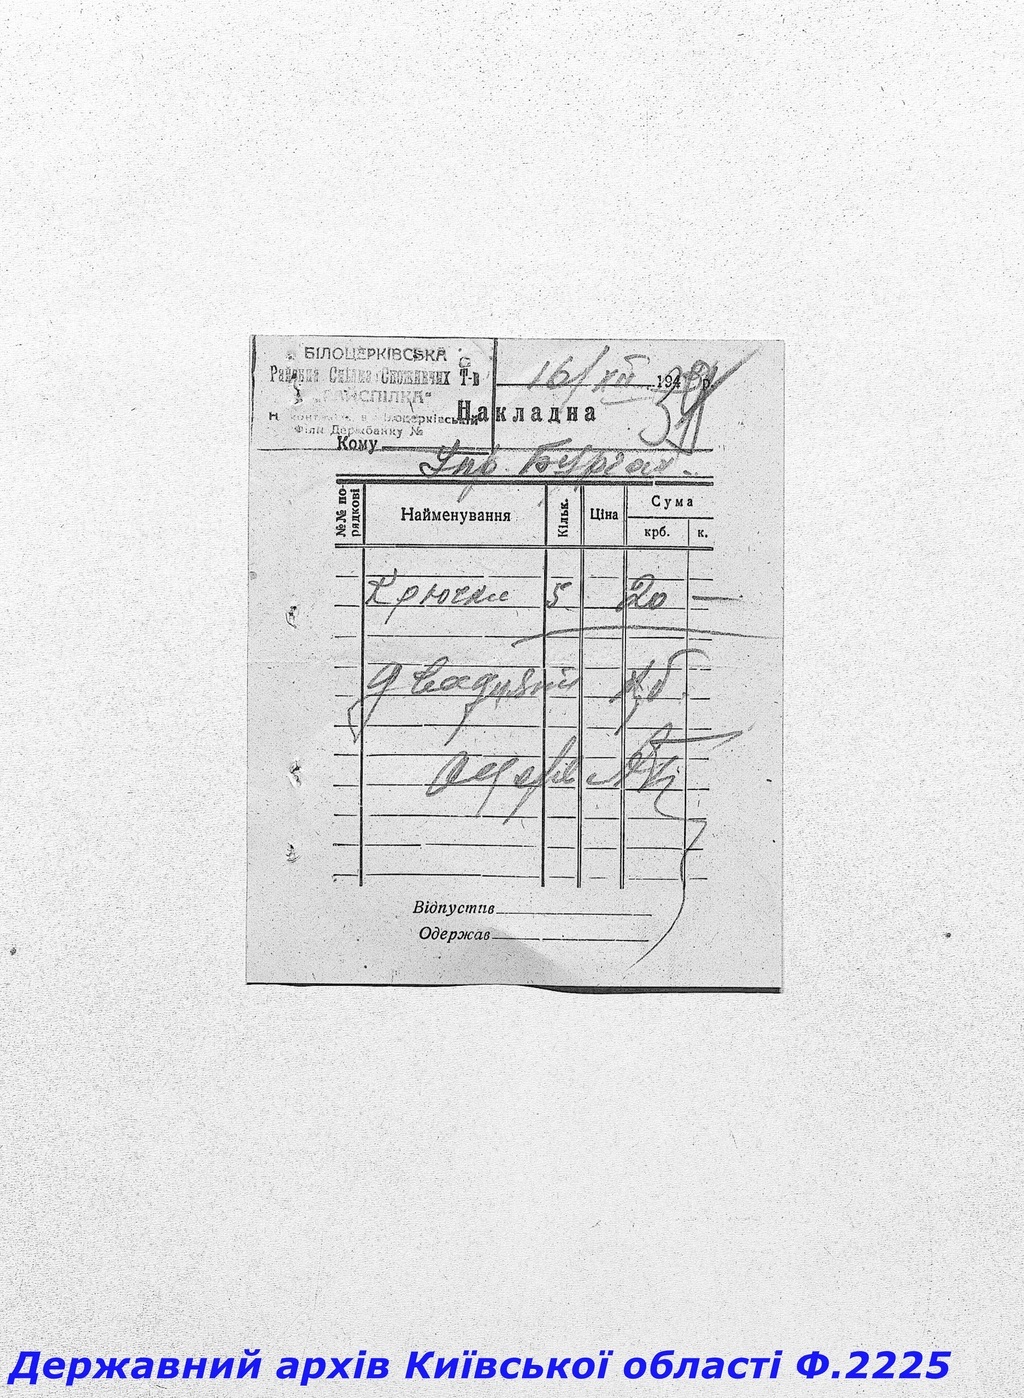 БІЛОЦЕРКІВСЬКА
Районна Спілка Споживчих Т-в
„РАЙСПІЛКА“
в Білоцерківській
Філи Держбанку №
16/XII 194 р.
31
Накладна
Кому
Упр.
№№ по-рядкові
Найменування
Кільк.
Ціна
Сума
крб.
к.
Крючки 5 20 —
Двадцять крб
Відпустив
Одержав
Державний архів Київської області Ф.2225